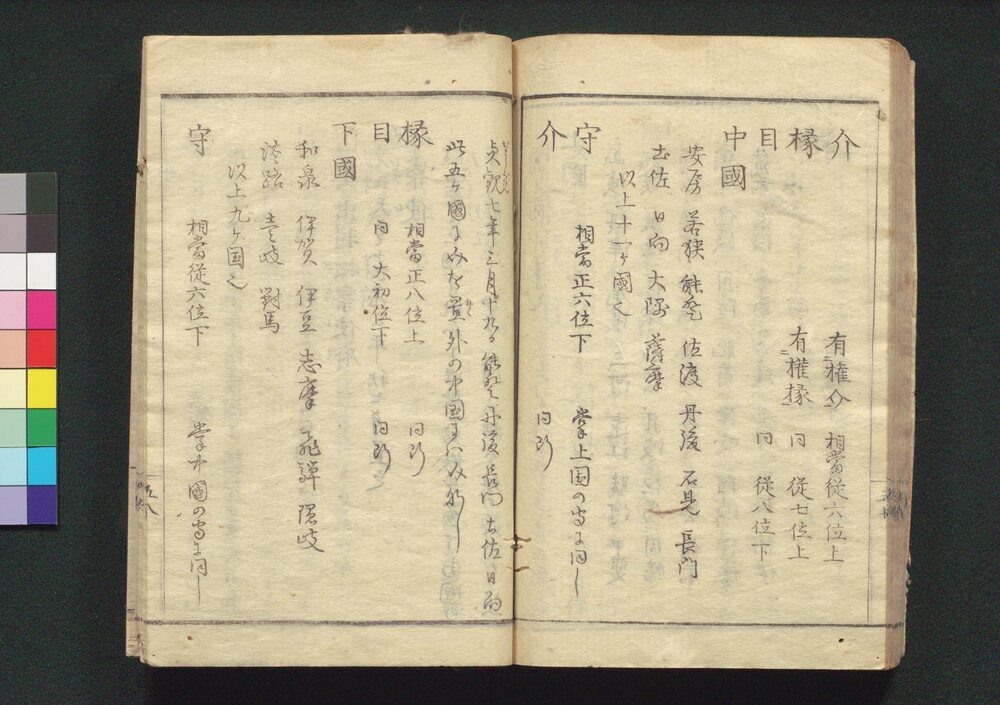 介 有權介 相當從六位上
椽 有權椽 同 從七位上
目 同 從八位下
中國
安房 若狭 能登 佐渡 丹後 石見 長門
土佐 日向 大隅 薩摩
以上十一ヶ國也
守 相當正六位下 掌上国の守に同し
介 同断
貞観七年三月十九日能登丹後長門土佐日向
此五ヶ國にみな置外の中國にハみへ
椽 相當正八位上 同断
目 同 大初位下 同断
下國
和泉 伊賀 伊豆 志摩 飛騨 隠岐
淡路 壹岐 對馬
以上九ヶ国也
守 相當従六位下 掌中國の守に同し